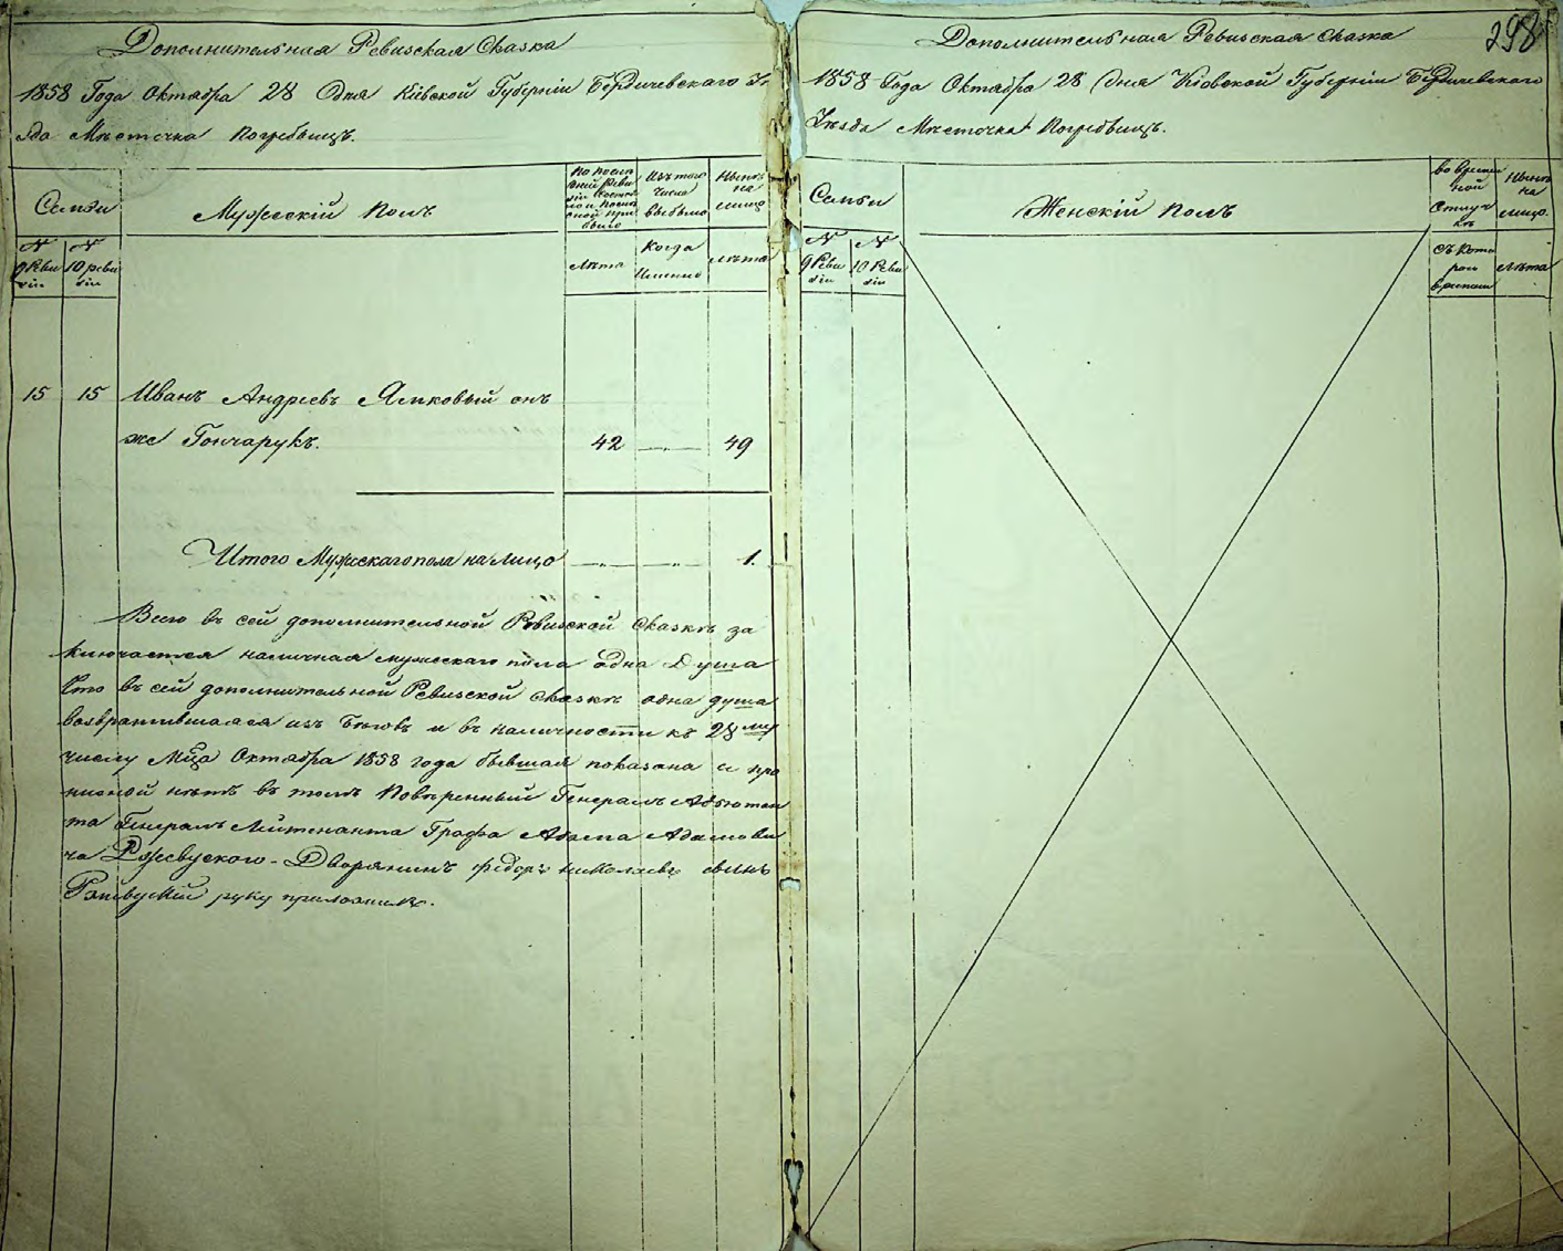 Дополнительная Ревизская Сказка
1858 Года Октября 28 Дня Кіевской Губерніи Бердичевскаго Уѣ
зда Мѣстечка Погребищъ.
Семьи
Мужескій Полъ
По послѣд
ней реви
зіи состоя
ло и после
оной при
было
Изъ того
числа
выбыло
Нынѣ
на
лицо
№
9 Реви
зіи
№
10 реви
зіи
лѣта
Когда
Именно
лѣта
15 15 Иванъ Андреевъ Ямковый онъ
же Гончарукъ. 42 —„— 49
Итого Мужескаго пола на лицо —„— —„— 1.
Всего въ сей дополнительной Ревизской Сказкѣ за
ключается наличная мужескаго пола одна Душа
Что въ сей дополнительной Ревизской Сказкѣ одна душа
возвратившаяся изъ Бѣговъ и въ наличности къ 28му
числу Мца Октября 1858 года бывшая показана и про
писной нѣтъ въ томъ Повѣренный Генералъ Адъютан
та Генералъ Лейтенанта Графа Адама Адамови
ча Ржевускаго - Дворянинъ Федоръ Николаевъ сынъ
руку приложилъ.
298
Дополнительная Ревизская Сказка
1858 Года Октября 28 Дня Кіовской Губерніи Бердичевскаго
Уѣзда Мѣстечка Погребищъ.
Семьи
Женскій Полъ
Во времен
ной
Отлуч
кѣ
Нынѣ
на
лицо.
№
9 Реви
зіи
№
10 Реви
зіи
Съ Кото
раго
времени
лѣта